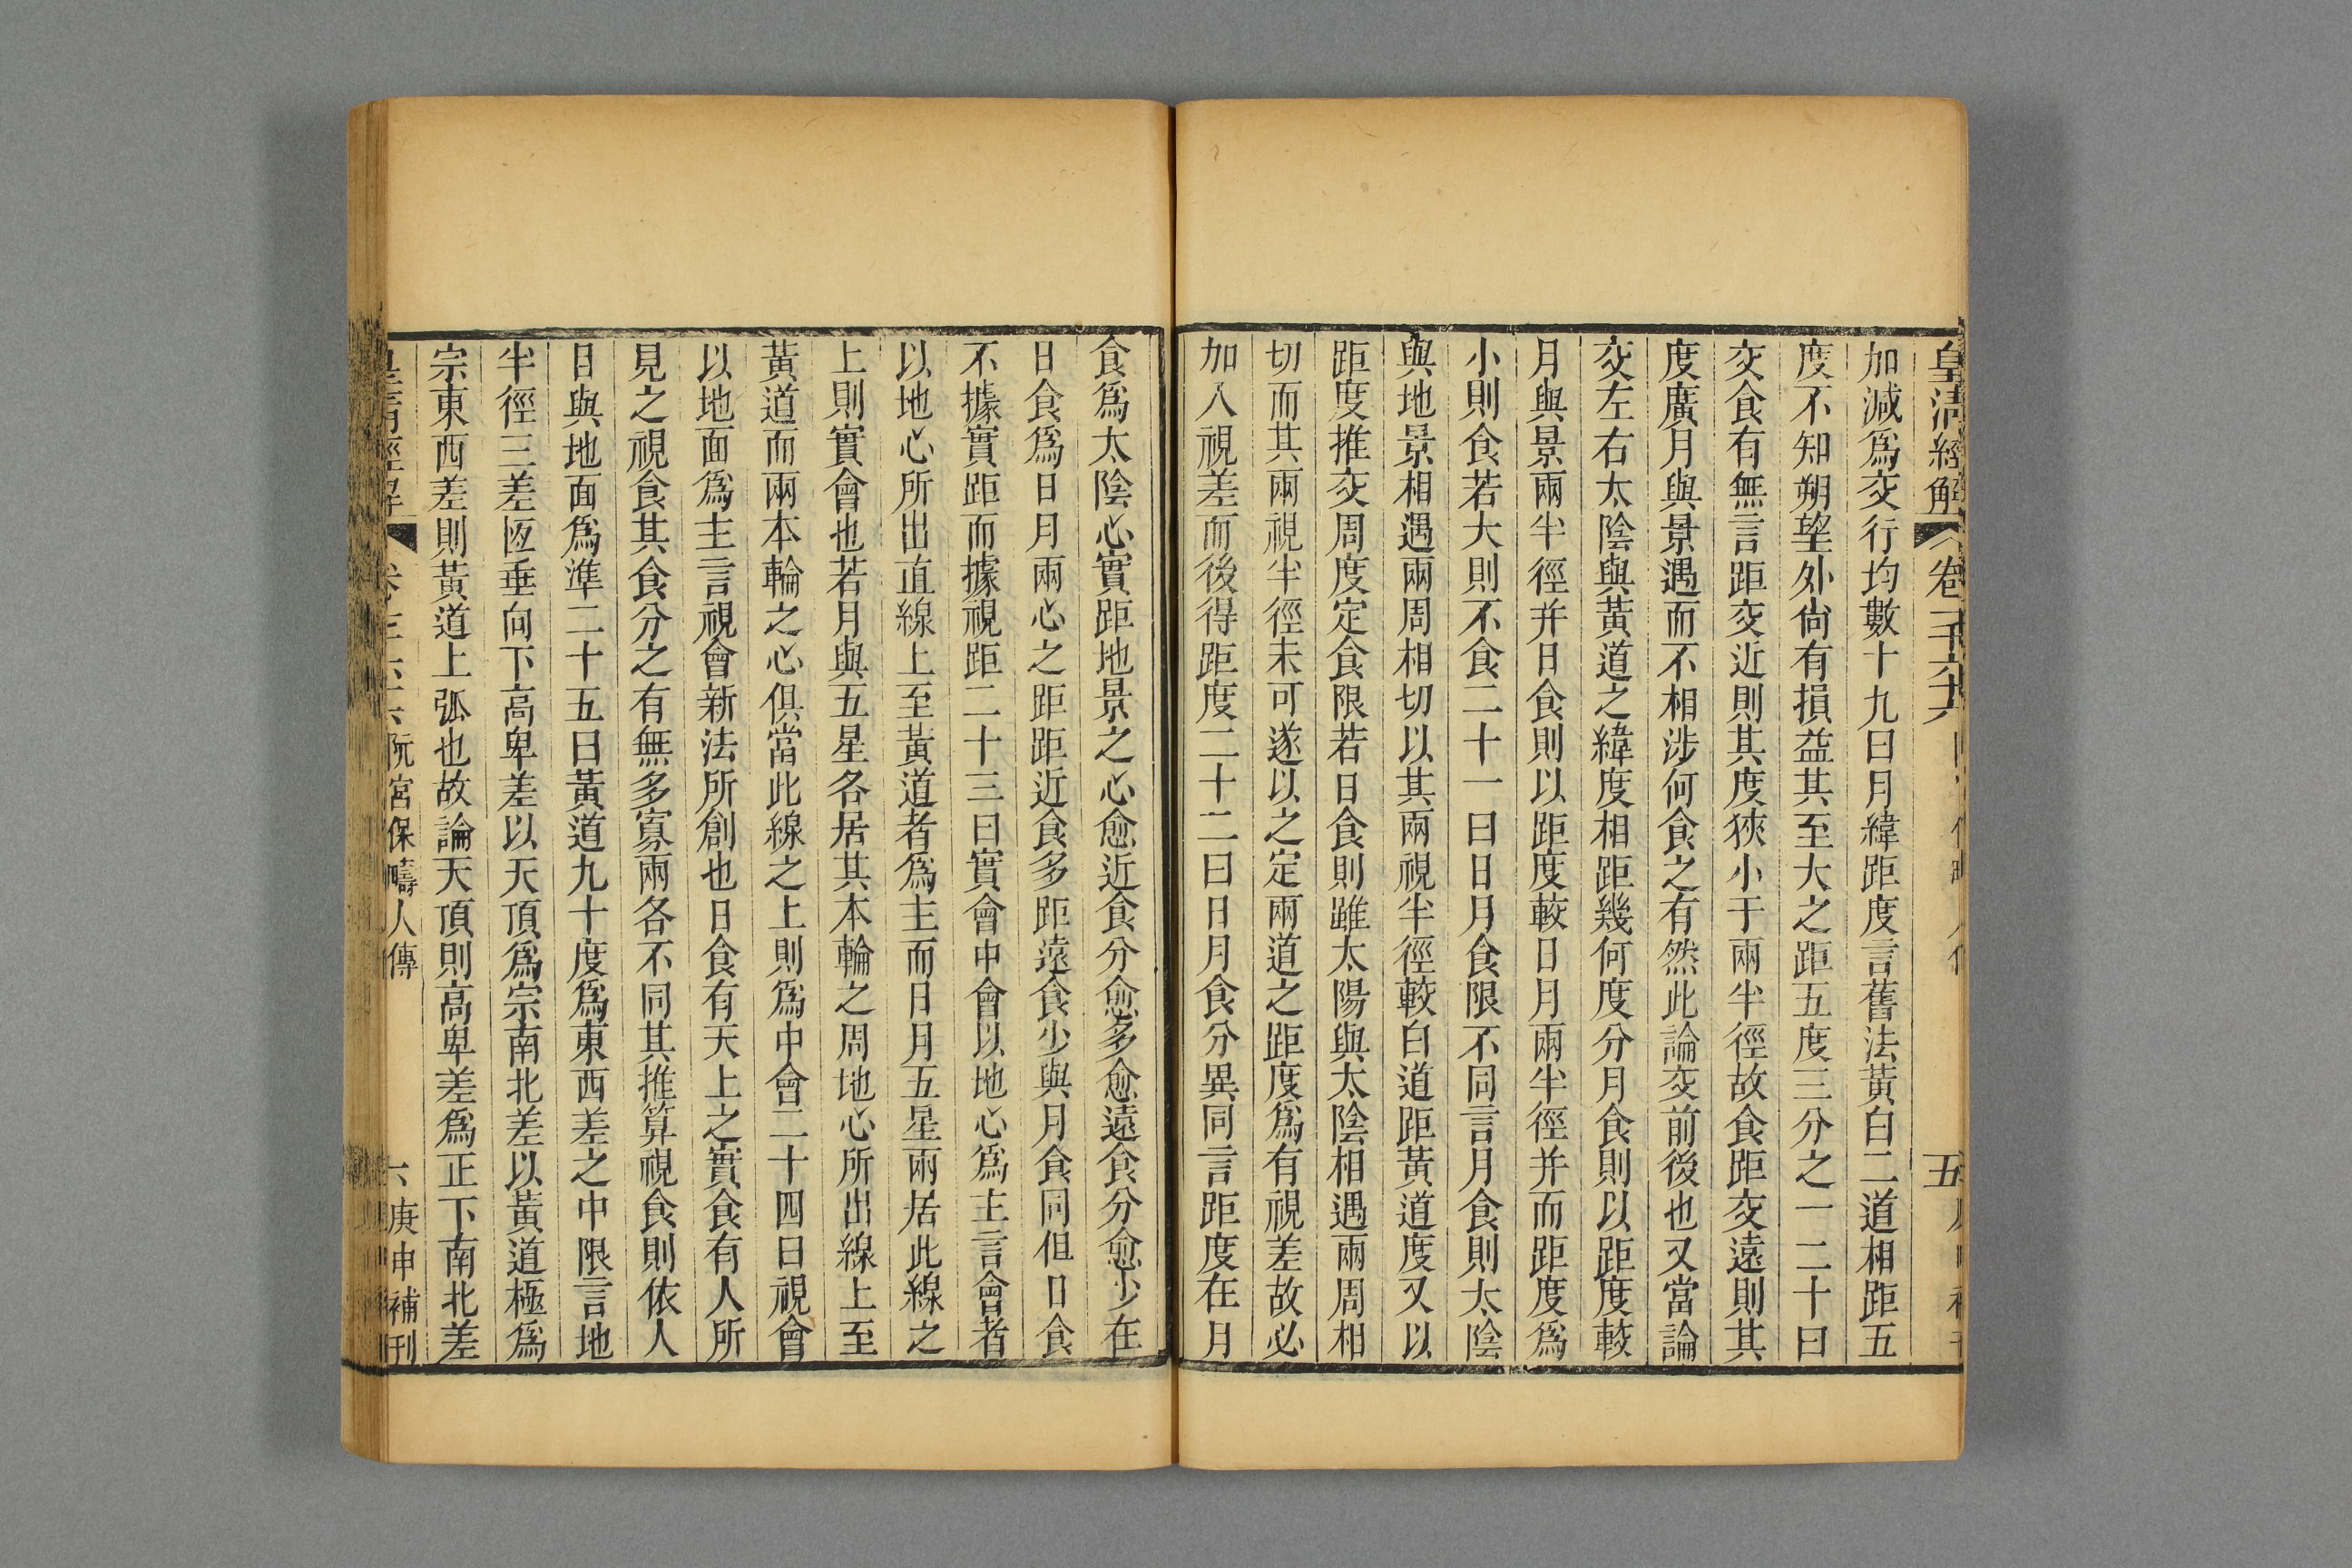 皇清經解 卷一千六十六 五
加減為交行均數十九曰月緯距度言舊法黃白二道相距五
度不知朔望外尚有損益其至大之距五度三分之一二十曰
交食有無言距交近則其度狹小于兩半徑故食距交遠則其
度廣月與景遇而不相涉何食之有然此論交前後也又當論
交左右太陰與黃道之緯度相距幾何度分月食則以距度較
月與景兩半徑并日食則以距度較日月兩半徑并而距度為
小則食若大則不食二十一曰日月食限不同言月食則太陰
與地景相遇兩周相切以其兩視半徑較白道距黃道度又以
距度推交周度定食限若日食則雖太陽與太陰相遇兩周相
切而其兩視半徑未可遂以之定兩道之距度為有視差故必
加入視差而後得距度二十二曰日月食分異同言距度在月
食為太陰心實距地景之心愈近食分愈多愈遠食分愈少在
日食為日月兩心之距距近食多距遠食少與月食同但日食
不據實距而據視距二十三曰實會中會以地心為主言會者
以地心所出直線上至黃道者為主而日月五星兩居此線之
上則實會也若月與五星各居其本輪之周地心所出線上至
黃道而兩本輪之心俱當此線之上則為中會二十四曰視會
以地面為主言視會新法所創也日食有天上之實食有人所
見之視食其食分之有無多寡兩各不同其推算視食則依人
目與地面為準二十五曰黃道九十度為東西差之中限言地
半徑三差恆垂向下高卑差以天頂為宗南北差以黃道極為
宗東西差則黃道上弧也故論天頂則高卑差為正下南北差
阮宮保疇人傳 六 庚申補刊